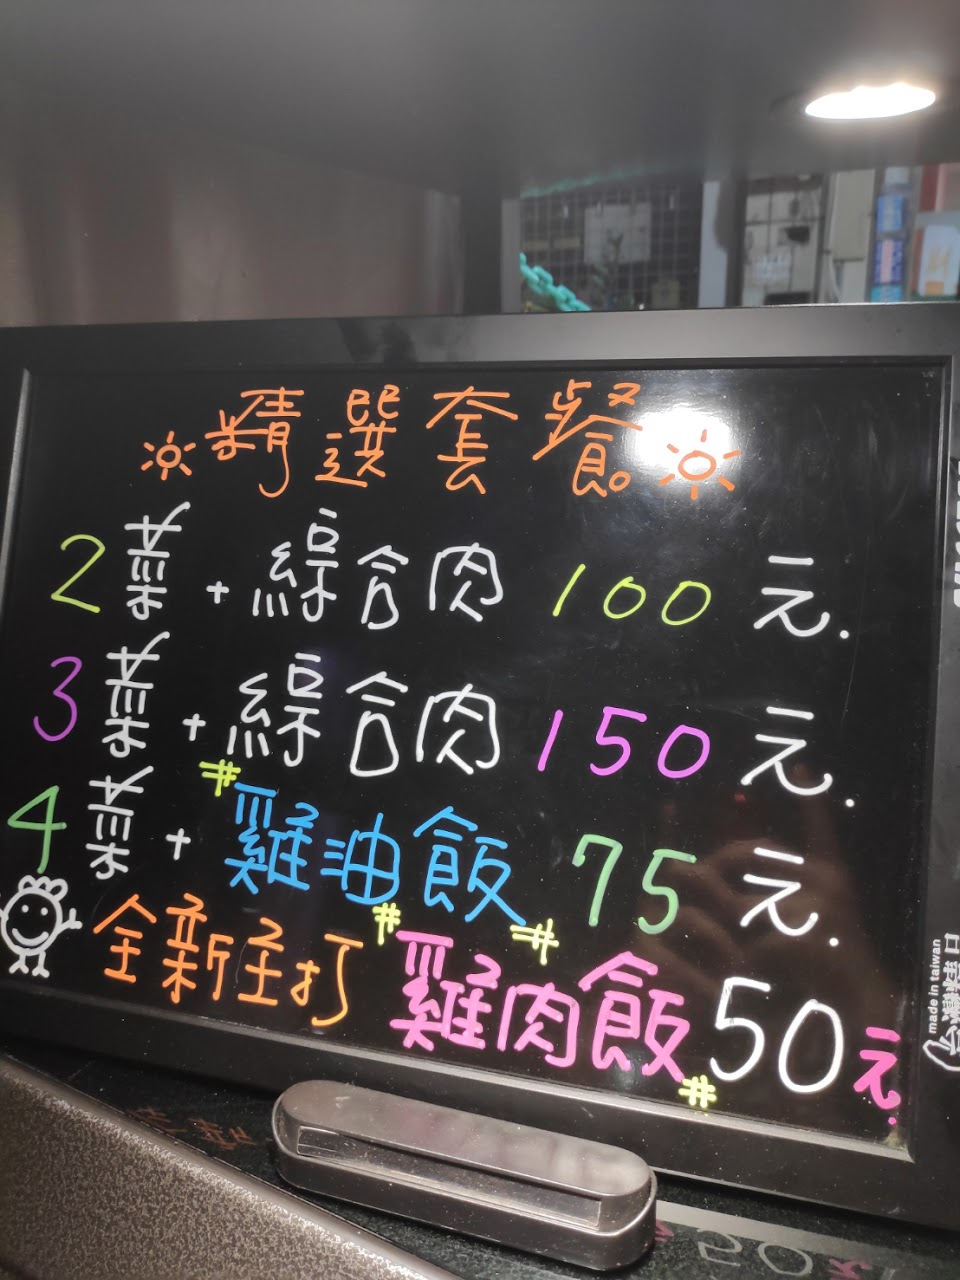 精選套餐
2菜+綜合肉 100元.
3菜+綜合肉 150元.
4菜+雞油飯 75元.
全新主打 雞肉飯50元
made in taiwan